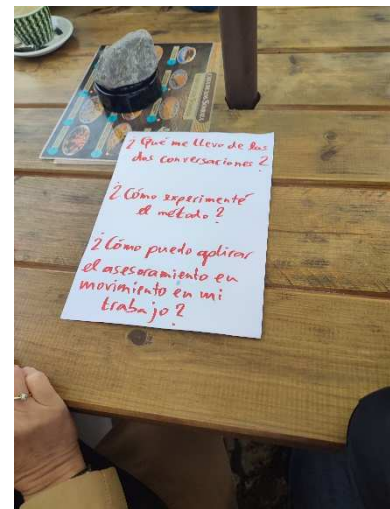 ¿ Qué me llevo de las
dos conversaciones ?
¿ Cómo experimenté
el método ?
¿ Cómo puedo aplicar
el asesoramiento en
movimiento en mi
trabajo ?